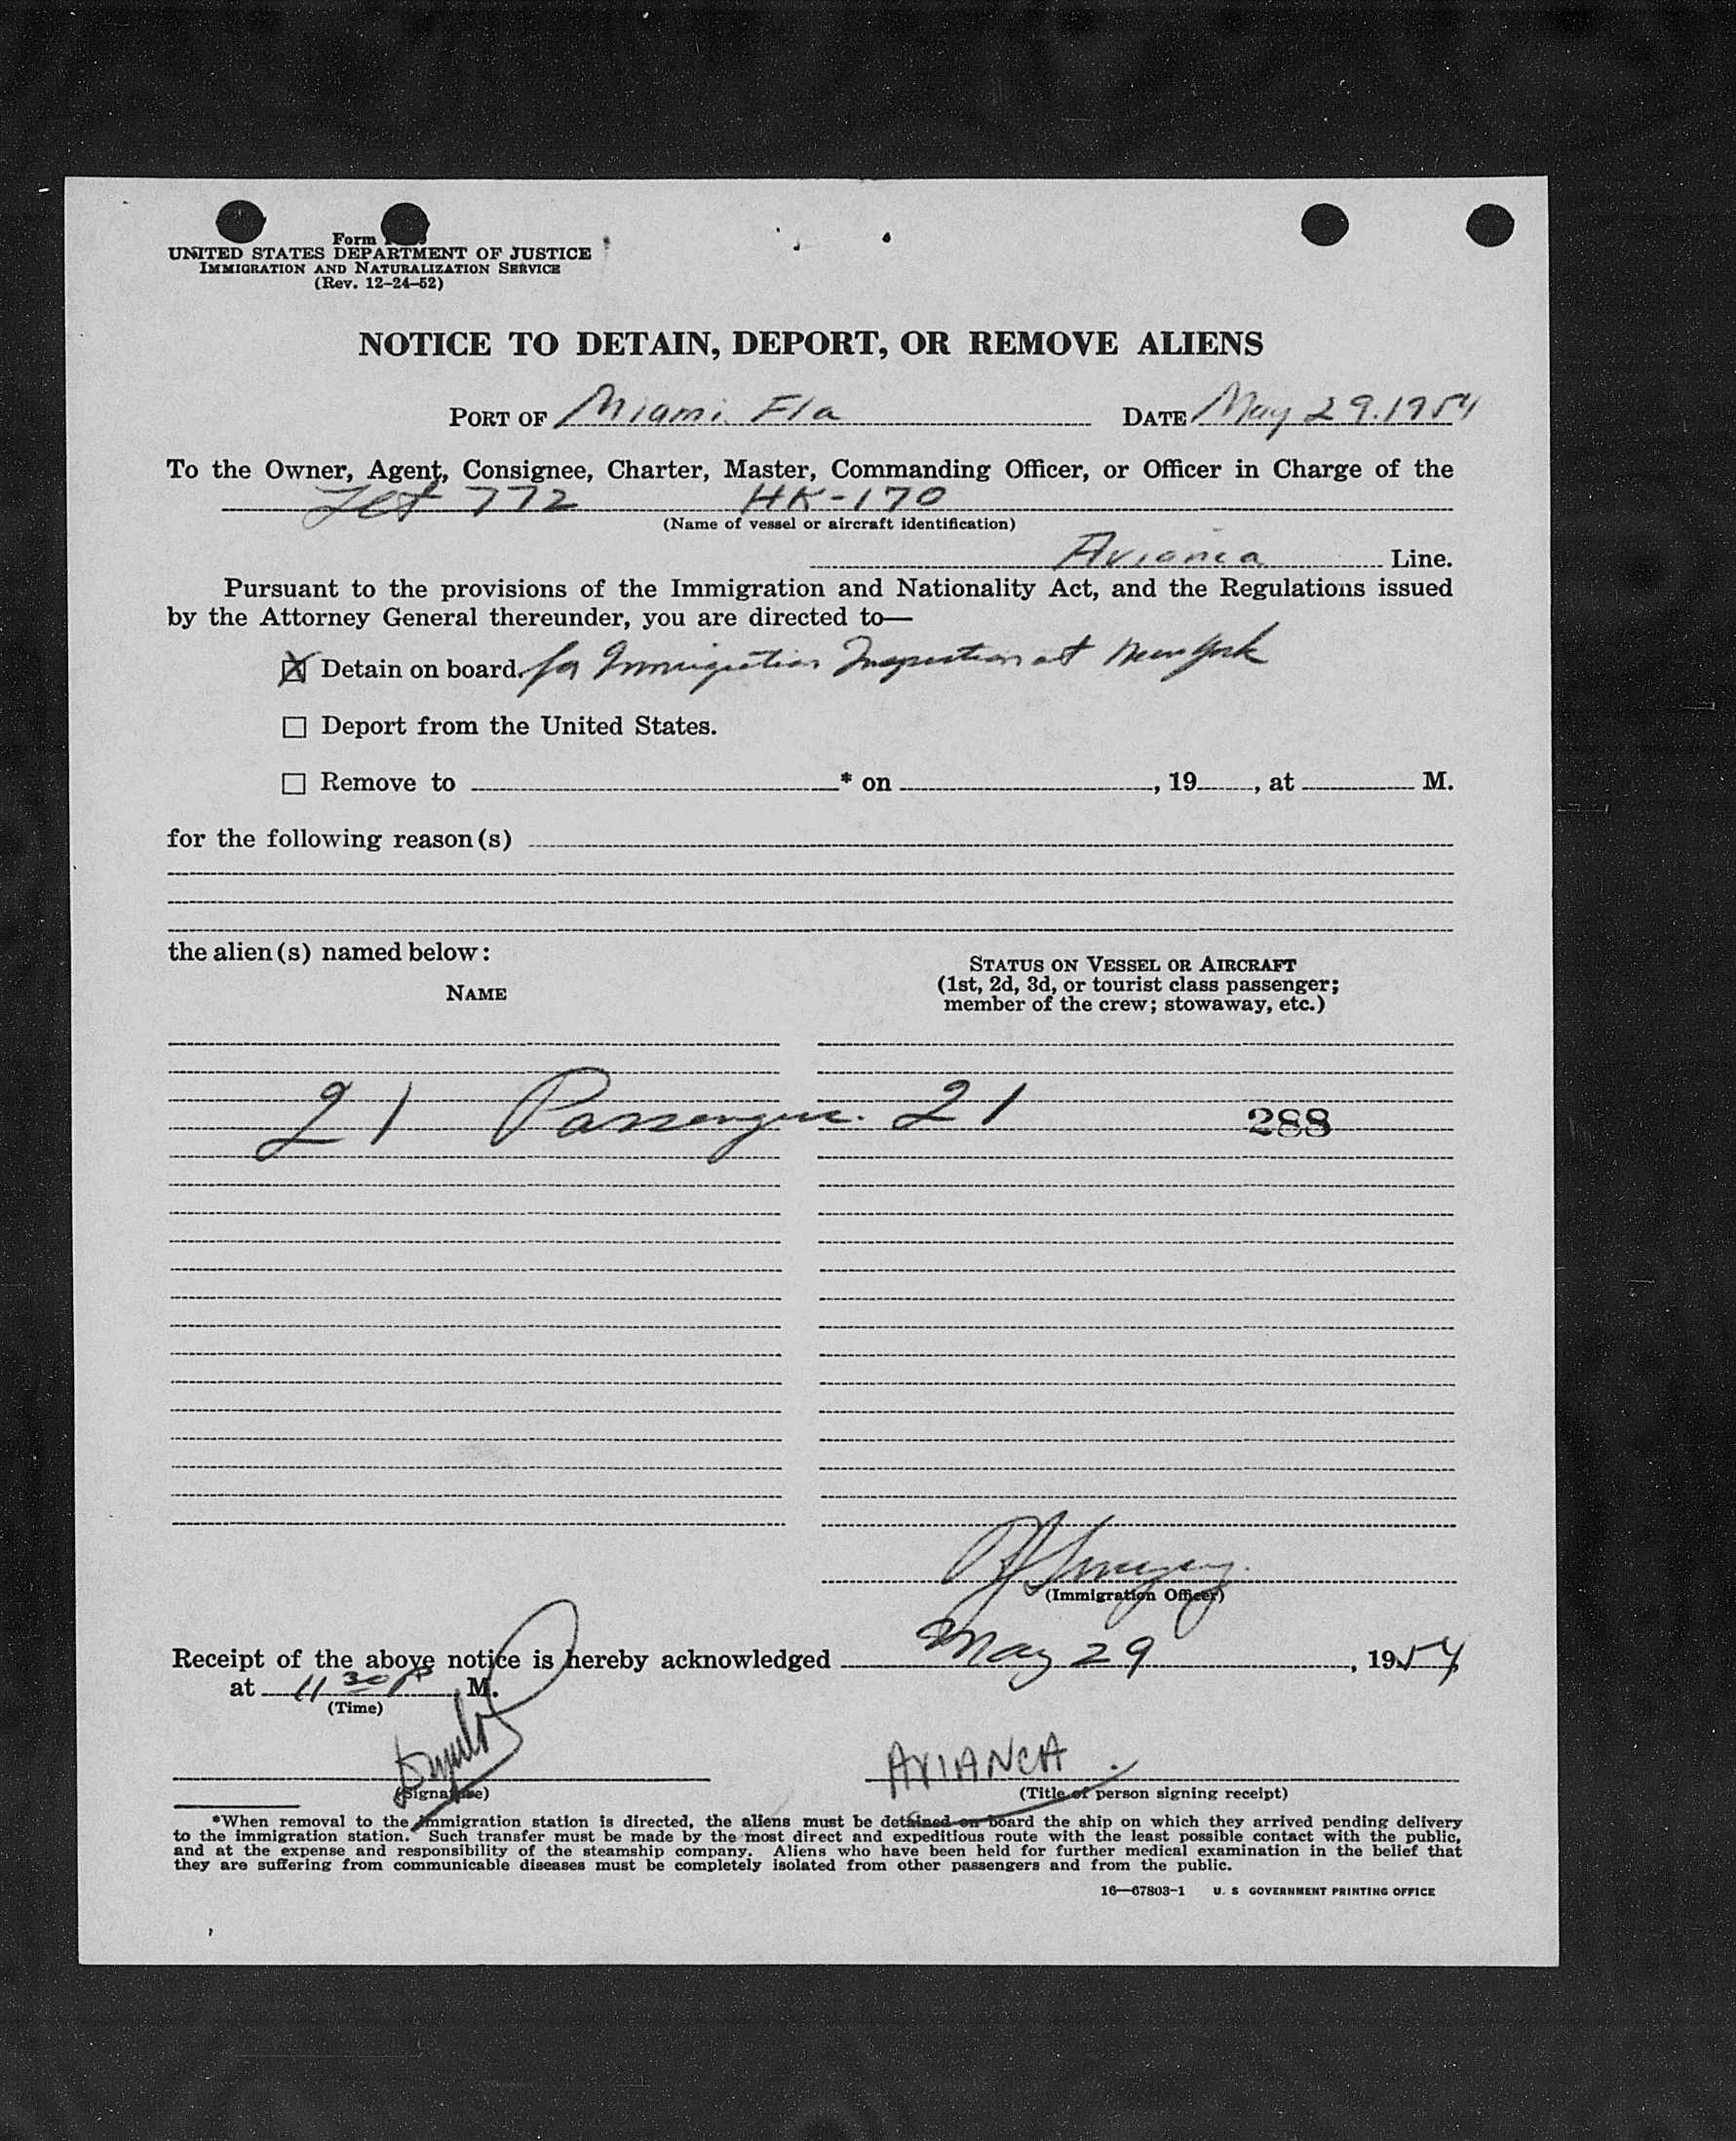 Form
UNITED STATES DEPARTMENT OF JUSTICE
IMMIGRATION AND NATURALIZATION SERVICE
(Rev. 12-24-52)
NOTICE TO DETAIN, DEPORT, OR REMOVE ALIENS
PORT OF Miami. Fla DATE May 29. 1954
To the Owner, Agent, Consignee, Charter, Master, Commanding Officer, or Officer in Charge of the
772 HK-170
(Name of vessel or aircraft identification)
Avianca Line.
Pursuant to the provisions of the Immigration and Nationality Act, and the Regulations issued
by the Attorney General thereunder, you are directed to—
X Detain on board. for Immigration Inspection at New York
Deport from the United States.
Remove to * on , 19 , at M.
for the following reason(s)
the alien(s) named below:
NAME
STATUS ON VESSEL OR AIRCRAFT
(1st, 2d, 3d, or tourist class passenger;
member of the crew; stowaway, etc.)
21 Passengers. 21 288
(Immigration Officer)
Receipt of the above notice is hereby acknowledged May 29, 1954
at 11 30 P M.
(Time)
AVIANCA.
(Signature) (Title of person signing receipt)
*When removal to the immigration station is directed, the aliens must be detained on board the ship on which they arrived pending delivery
to the immigration station. Such transfer must be made by the most direct and expeditious route with the least possible contact with the public,
and at the expense and responsibility of the steamship company. Aliens who have been held for further medical examination in the belief that
they are suffering from communicable diseases must be completely isolated from other passengers and from the public.
16—67803-1 U. S GOVERNMENT PRINTING OFFICE